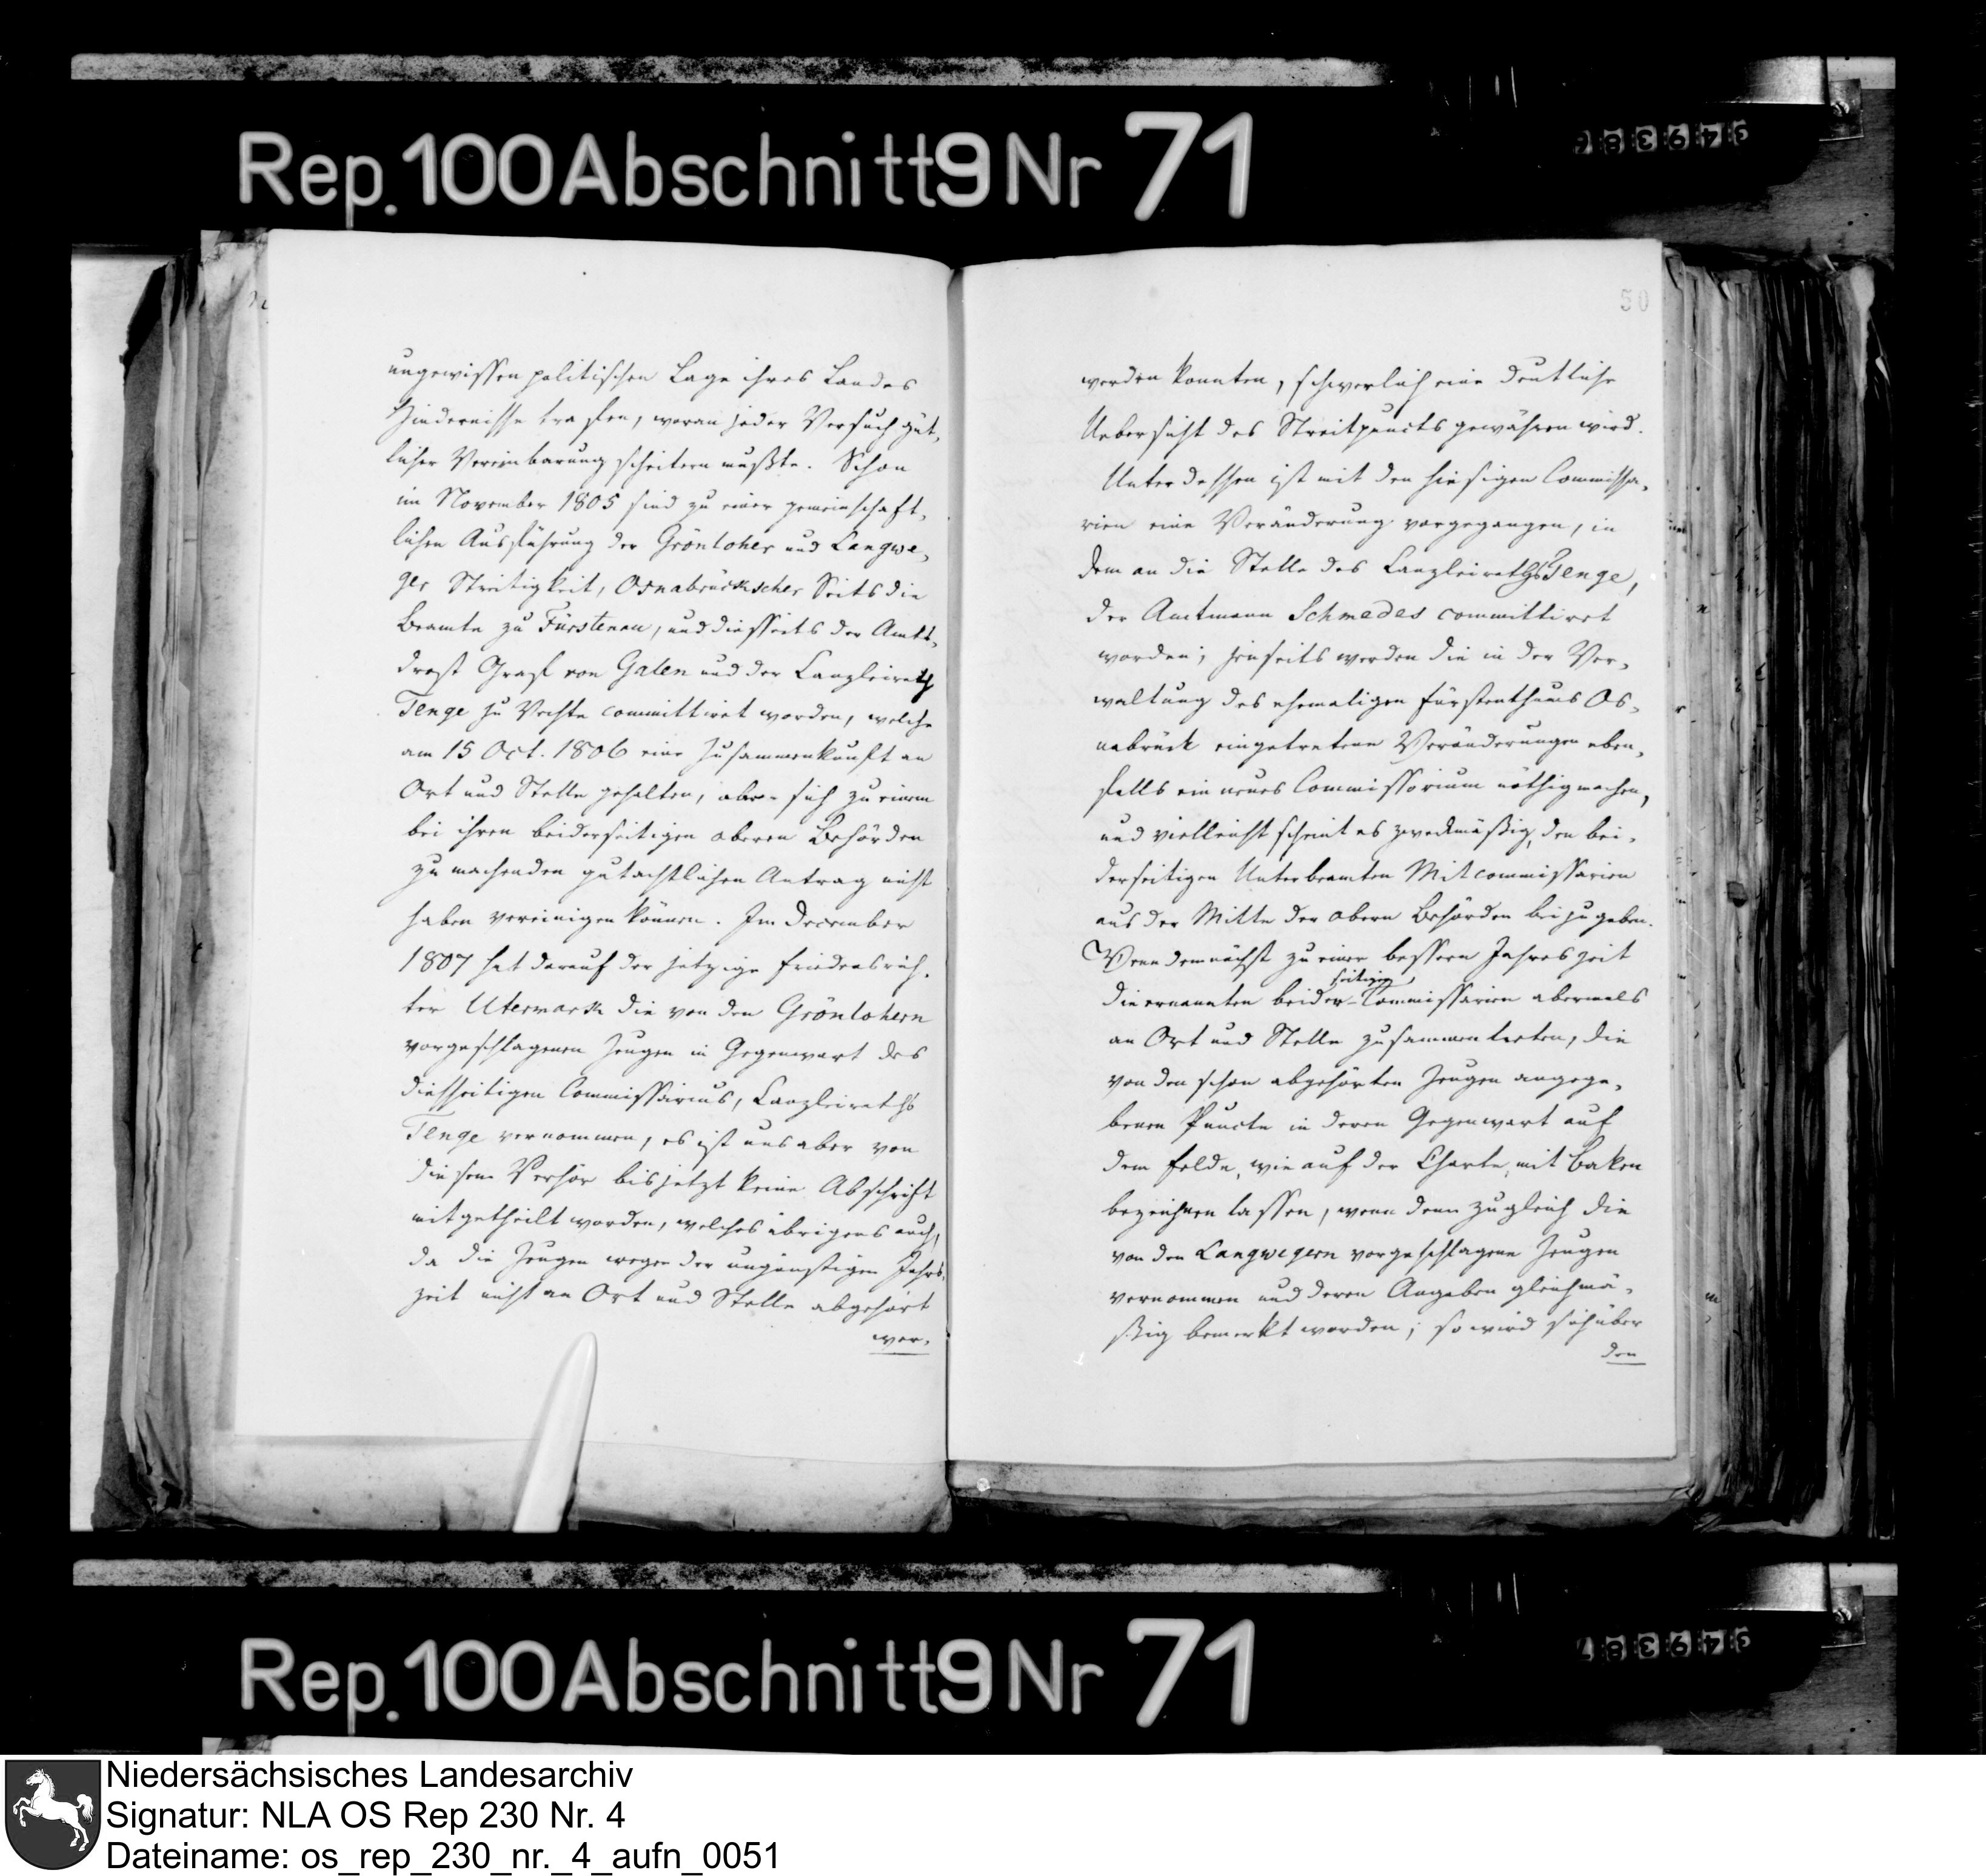 Rep. 100 Abschnitt 9 Nr 71
ungewissen politischen Lage ihres Landes
Hindernisse trafen, woran jeder Versuch güt-
licher Vereinbarung scheitern mußte. Schon
im November 1805 sind zu einer gemeinschaft-
lichen Ausführung der Grönloher und Langwe-
ger Streitigkeit, Osnabrückscher Seits die
Beamte zu Fürstenau, und diesseits der Amts-
drost Graf von Galen und der Canzleirath
Tenge zu Vechte committiret worden, welche
am 15 Oct. 1806 eine Zusammenkunft an
Ort und Stelle gehalten, aber sich zu einem
bei ihren beiderseitigen oberen Behörden
zu machenden gutachtlichen Antrag nicht
haben vereinigen können. Im December
1807 hat darauf der jetzige Friedensrich-
ter Utermark die von den Grönlohern
vorgeschlagenen Zeugen in Gegenwart des
diesseitigen Commissarius, Canzleiraths
Tenge vernommen, es ist uns aber von
diesem Verhör bis jetzt keine Abschrift
mitgetheilt worden, welches übrigens auch,
da die Zeugen wegen der ungünstigen Jahrs-
zeit nicht an Ort und Stelle abgehört
wer-
50
werden konnten, schwerlich eine deutliche
Uebersicht des Streitpuncts gewähren wird.
Unterdessen ist mit den hiesigen Commissa-
rien eine Veränderung vorgegangen, in
dem an die Stelle des Canzleiraths Tenge,
der Amtmann Schmedes committiret
worden; jenseits werden die in der Ver-
waltung des ehemaligen Fürstenthums Os-
nabrück eingetretene Veränderungen eben-
falls ein neues Commissorium nöthig machen,
und vielleicht scheint es zweckmäßig, den bei-
derseitigen Unterbeamten Mitcommissarien
aus der Mitte der obern Behörden beizugeben.
Wenn demnächst zu einer bessern Jahreszeit
die ernannten beiderseitigen Commissarien abermals
an Ort und Stelle zusammen treten, die
von den schon abgehörten Zeugen angege-
benen Puncte in deren Gegenwart auf
dem Felde, wie auf der Charte, mit Baken
bezeichnen lassen, wenn denn zugleich die
von den Langwegern vorgeschlagene Zeugen
vernommen und deren Angaben gleichmä-
ßig bemerkt worden; so wird sich über
den
Rep. 100 Abschnitt 9 Nr 71
Niedersächsisches Landesarchiv
Signatur: NLA OS Rep 230 Nr. 4
Dateiname: os_rep_230_nr._4_aufn_0051